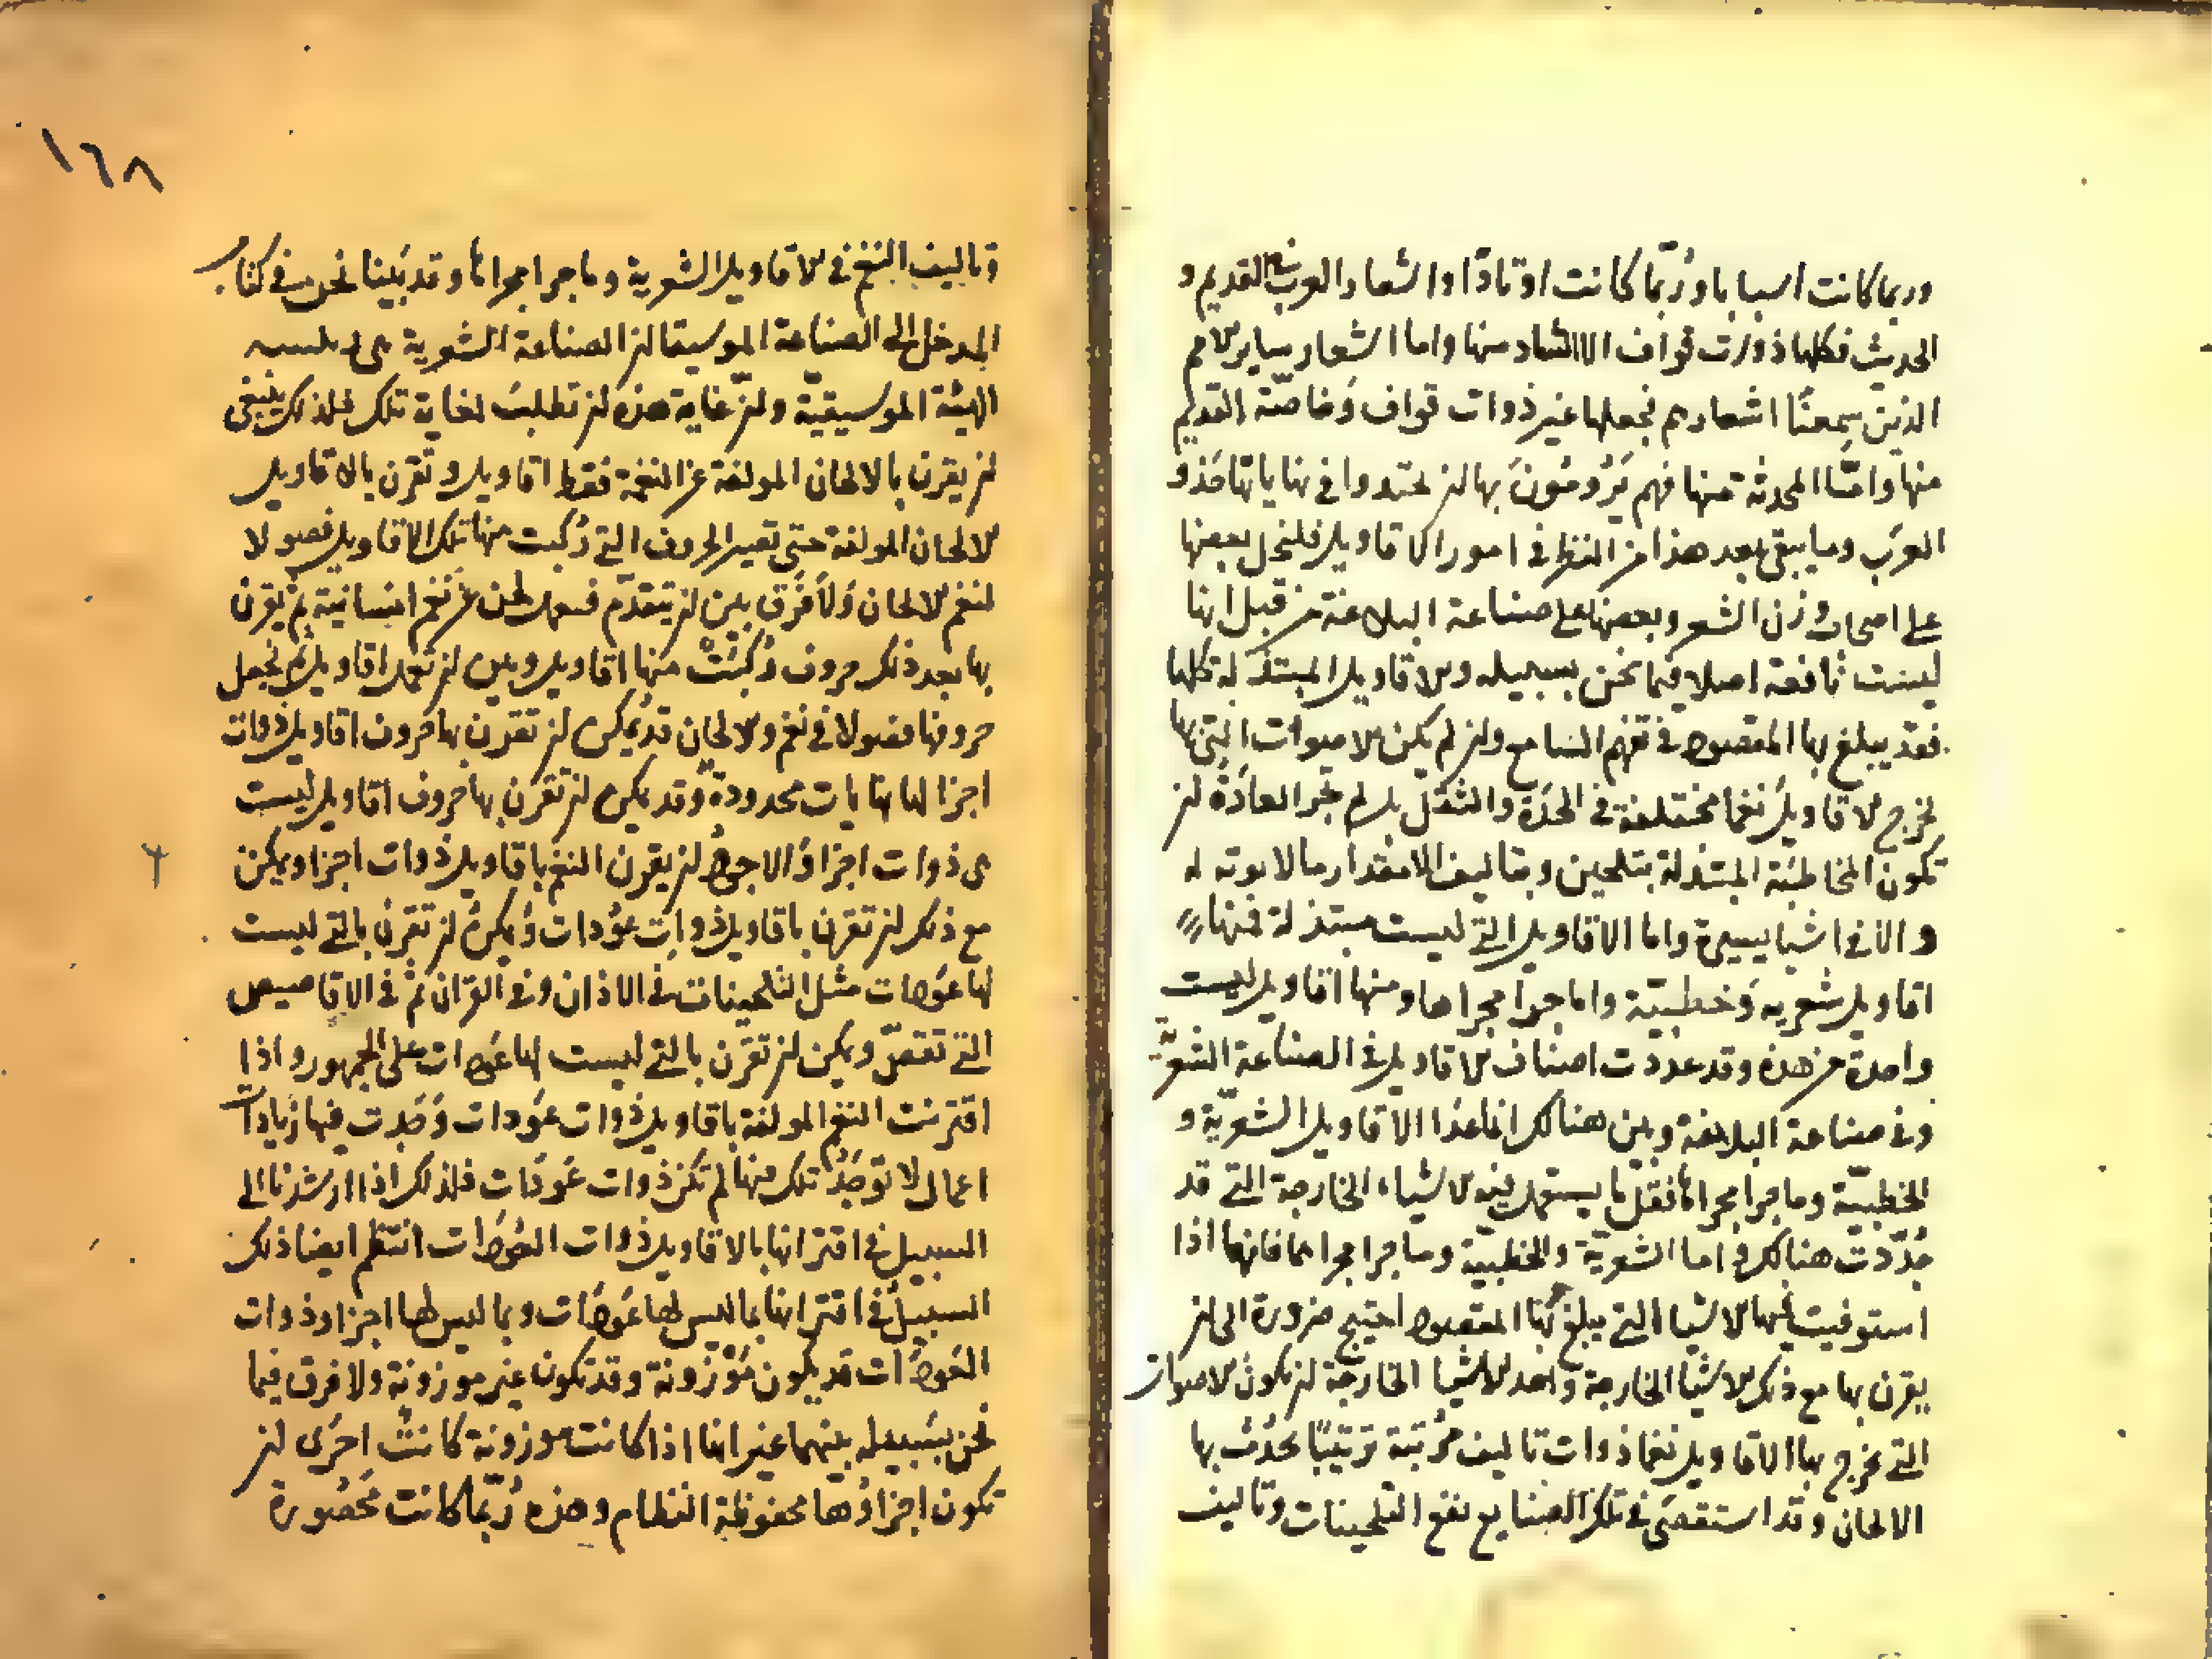 وربما كانت اسبابا وربّما كانت اوتادًا واشعار العرب القديم و
الحدث فكلها ذوات قواف الا الشاد منها واما اشعار ساير الامم
الذين سمعنا اشعارهم فجعلها غير ذوات قواف وخاصّة القديم
منها وامّا المحدثة منها فهم يَرُومُونَ بها ان يحتدوا في نهاياتها حَذو
العرَب وما يبقى بعد هذا من النظر في امور الاقاويل فلنحل بعضها
على اصحاب وزن الشعر وبعضها على صناعة البلاغة من قبل انها
ليست نافعة اصلا فيما نحن بسبيله والاقاويل المبتذلة كلها
فقد يبلغ بها المقصود في تفهم السامع وان لم يكن الاصوات التي بها
تخرج الاقاويل نغما مختلفة في الحدّة والثقل بل لم تجر العادَة ان
تكون المخاطبَة المبتذلة بتلحين وبتاليف الا مقدار ما لا بوته له
والا في اشيا يسيرة واما الاقاويل التي ليست مبتذلة فمنها
اقاويل شعريه وَخطبيّة واما جرا مجراها ومنها اقاويل ليست
واحدة من هذه وقد عددت اصناف الاقاويل في الصناعة الشعريّة
وفي صناعة البلاغة وبين هنالك انما عدا الاقاويل الشعريّة و
الخطبيّة وما جرا مجراها نقل ما يستعمل فيه الاشياء الخارجة التي قد
حُدّدت هنالك واما الشعريّة والخطبيّة وما جرا مجراهما فانهما اذا
استوفيت فيهما الاشيا التي يبلغ بها المقصود احتيج ضرورة الى ان
يقرن بها مع ذلك الاشيا الخارجة واحد الاشيا الخارجة ان تكون الاصوات
التي تخرج بها الاقاويل نغما ذوات تاليف مرتبة ترتيبًا يحدُث بها
الالحان وقد استقصَى في تلك الصنايع نفع التلحينات وتاليف
١٦٨
وتاليف النغم في الاقاويل الشعرية وما جرا مجراها وقد بَيّنا نحن في كتاب
المدخل الى الصناعة الموسيقا ان الصناعة الشعرية هي
الهيئة الموسيقيّة وان غاية هذه ان تطلبَ لغاية تلك فلذلك ينبغى
ان يقرن بالالحان المولفة عن النغمة فقط اقاويل وتقرن بالاقاويل
الالحان المولفة حتى تصير الحروف التي رُكبت منها تلك الاقاويل فصولا
لنغم الالحان وَلا فَرَق بين ان يتقدّم فيعمل لحن عن نغم انسانية ثم يقرن
بها بعد ذلك حروف رُكبَت منها اقاويل وبين ان تعمل اقاويل ثم تجعل
حروفها فصولا في نغم والالحان قد يمكن ان تقرن بها حروف اقاويل ذوات
اجزا لها نهايات محدودة وقد يمكن ان تقرن بها حروف اقاويل ليست
هى ذوات اجزا والاجود ان يقرن النغم باقاويل ذوات اجزا ويمكن
مع ذلك ان تقرن باقاويل ذوات عَوْدات وُيمكن ان تقرن بالتي ليست
لها عَودات مثل التلحينات في الاذان وفي القرَان ثم في الاقاصيص
التي تقصّ ويمكن ان تقرَن بالتي ليست لها عَودات على الجمهور واذا
اقترنت النغم المولفة باقاويل ذوات عَودات وَجَدت فيها زيادات
اعمال لا توجَدُ تلك منها لم تكن ذوات عَودَات فلذلك اذا ارشدنا الى
السبيل في اقترانها بالاقاويل ذوات العَودَات انتظم ايضا ذلك
السبيل في اقترانها بما ليس لها عَودَات وبما ليس لها اجزا وذوات
العَودَات قد يكون مَوْزونة وقد تكون غير موزونة ولا فرق فيما
نحن بسَبيله بينهما غير انها اذا كانت موزونة كانتْ احرَى ان
تكون اجزاؤها محفوظة النظام وهذه رُبّما كانت مَحصُورة